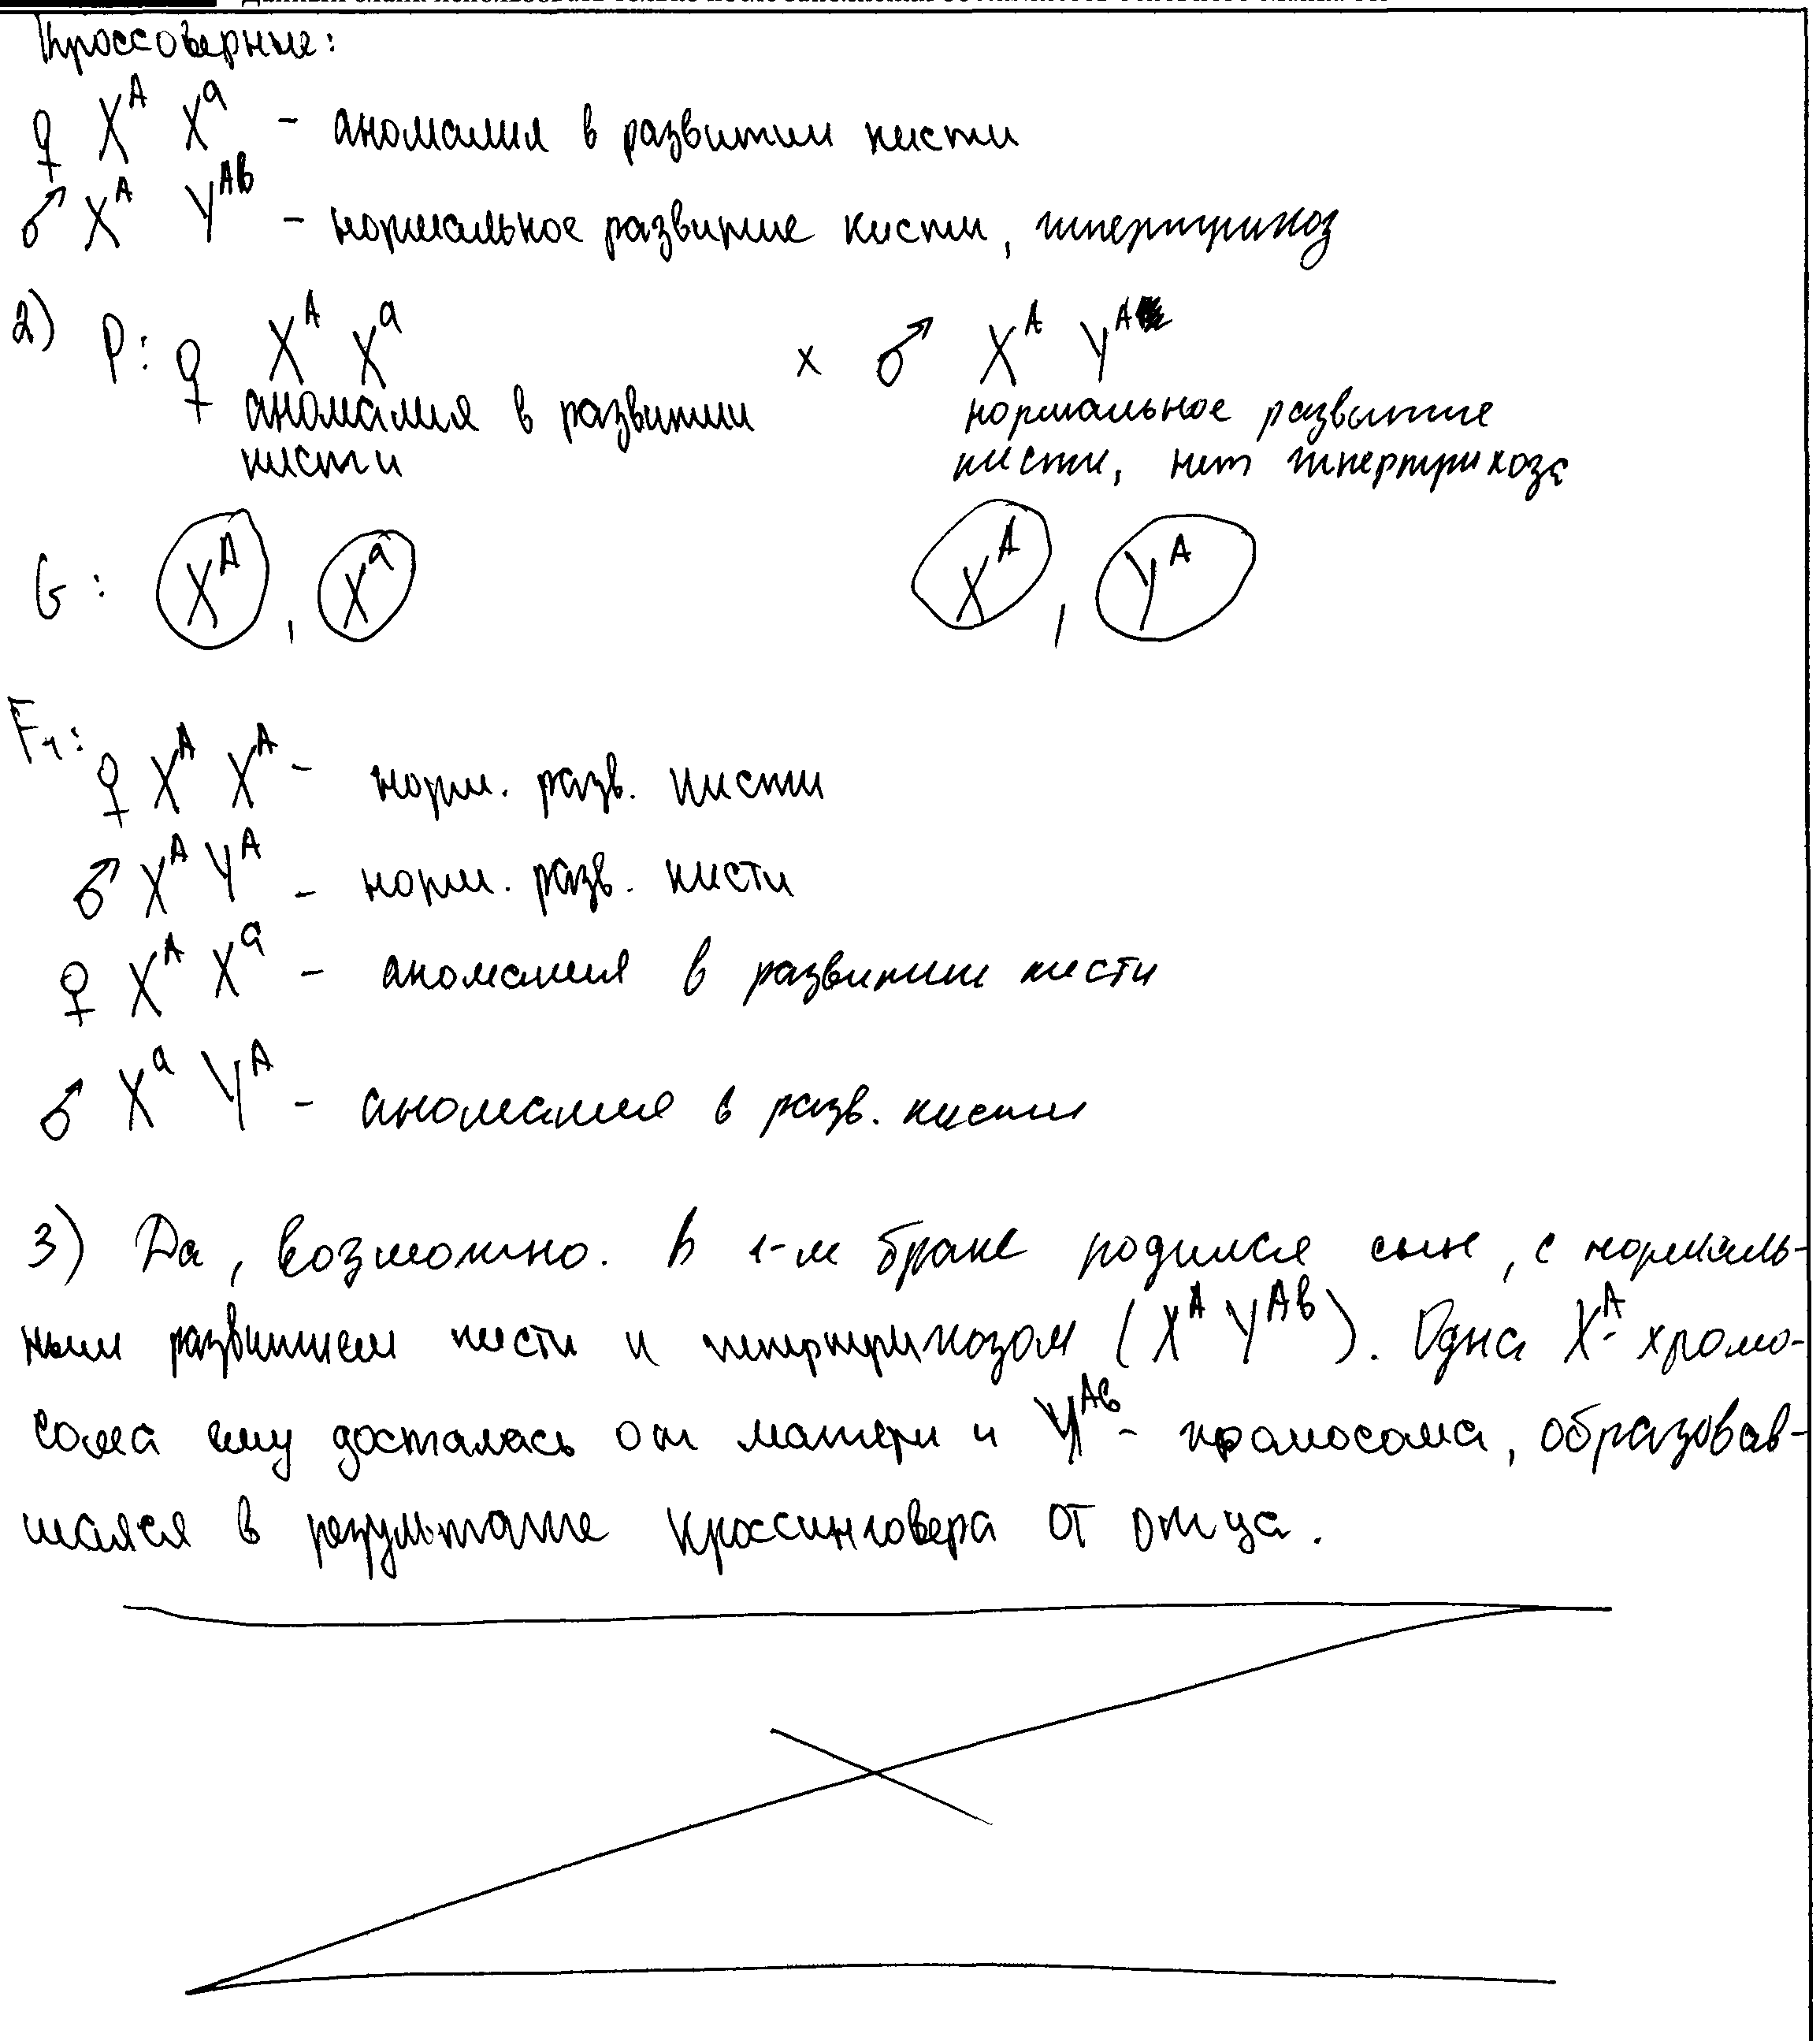 Кроссоверные:
♀ Xᴬ Xᵃ - аномалия в развитии кисти
♂ Xᴬ Yᴬᵇ - нормальное развитие кисти, гипертрихоз
2) P: ♀ Xᴬ Xᵃ x ♂ Xᴬ Yᴬ
аномалия в развитии нормальное развитие
кисти кисти, нет гипертрихоза
G: Xᴬ, Xᵃ Xᴬ, Yᴬ
F₁:
♀ Xᴬ Xᴬ - норм. разв. кисти
♂ Xᴬ Yᴬ - норм. разв. кисти
♀ Xᴬ Xᵃ - аномалия в развитии кисти
♂ Xᵃ Yᴬ - аномалия в разв. кисти
3) Да, возможно. В 1-м браке родился сын, с нормаль-
ным развитием кисти и гипертрихозом (Xᴬ Yᴬᵇ). Одна Xᴬ- хромо-
сома ему досталась от матери и Yᴬᵇ- хромосома, образовав-
шаяся в результате кроссинговера от отца.